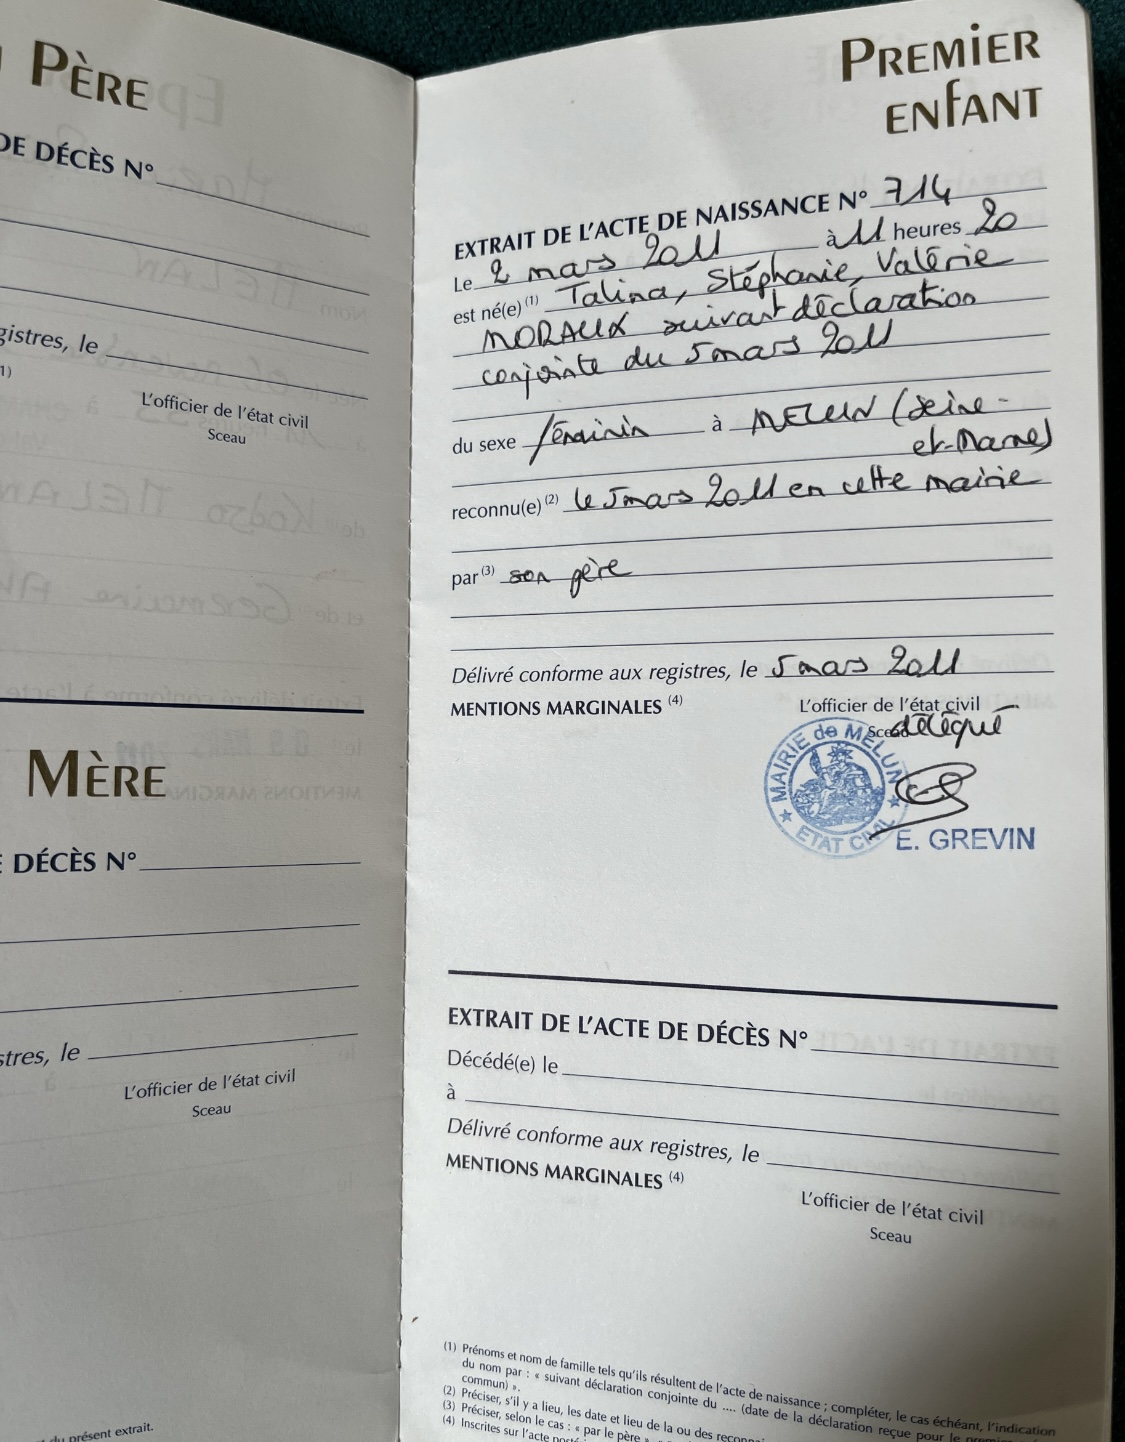 PÈRE
DE DÉCÈS N°
gistres, le
1)
L'officier de l'état civil
Sceau
MÈRE
E DÉCÈS N°
stres, le
L'officier de l'état civil
Sceau
du présent extrait.
PREMIER
ENFANT
EXTRAIT DE L'ACTE DE NAISSANCE N° 714
Le 2 mars 2011 à 11 heures 20
est né(e) (1) Talina, Stéphanie, Valérie
MORAUX suivant déclaration
conjointe du 5 mars 2011
du sexe féminin à MELUN (Seine-
et-Marne)
reconnu(e) (2) le 5 mars 2011 en cette mairie
par (3) son père
Délivré conforme aux registres, le 5 mars 2011
MENTIONS MARGINALES (4)
L'officier de l'état civil
Sceau délégué
MAIRIE de MELUN
ETAT CIVIL
E. GREVIN
EXTRAIT DE L'ACTE DE DÉCÈS N°
Décédé(e) le
à
Délivré conforme aux registres, le
MENTIONS MARGINALES (4)
L'officier de l'état civil
Sceau
(1) Prénoms et nom de famille tels qu'ils résultent de l'acte de naissance ; compléter, le cas échéant, l'indication
du nom par : « suivant déclaration conjointe du .... (date de la déclaration reçue pour le
commun) ».
(2) Préciser, s'il y a lieu, les date et lieu de la ou des
(3) Préciser, selon le cas : « par le père »,
(4) Inscrites sur l'acte